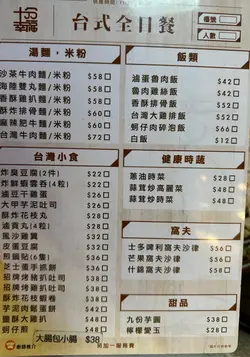 台式全日餐
檯號
人數
湯麵·米粉
沙茶牛肉麵/米粉 $58
海陸雙丸麵/米粉 $58
香酥雞扒麵/米粉 $58
酥炸排骨麵/米粉 $60
麻辣肥牛麵/米粉 $60
台灣牛肉麵/米粉 $72
飯類
滷蛋魯肉飯 $42
魯肉雞絲飯 $42
香酥排骨飯 $52
台灣大雞排飯 $52
蚵仔肉碎泡飯 $52
白飯 $12
台灣小食
炸臭豆腐(2件) $22
炸鮮蝦雲吞(4粒) $22
滷豆干雞蛋 $22
大甲芋泥吐司 $28
酥炸花枝丸 $28
滷貢丸(4粒)
風沙雞翼
皮蛋豆腐
煎鍋貼(6隻)
芝士蛋手抓餅
招牌豬扒吐司
招牌雞扒吐司
酥炸花枝春卷
芋泥肉鬆蛋餅
鹽酥大雞扒
蚵仔煎
大腸包小腸 $38
健康時蔬
蔥油時菜 $28
蒜茸炒高麗菜 $48
蒜茸炒時菜 $48
窩夫
士多啤利窩夫沙律 $36
芒果窩夫沙律 $36
什錦窩夫沙律 $38
甜品
九份芋圓 $38
檸檬愛玉 $28
另加一服務費